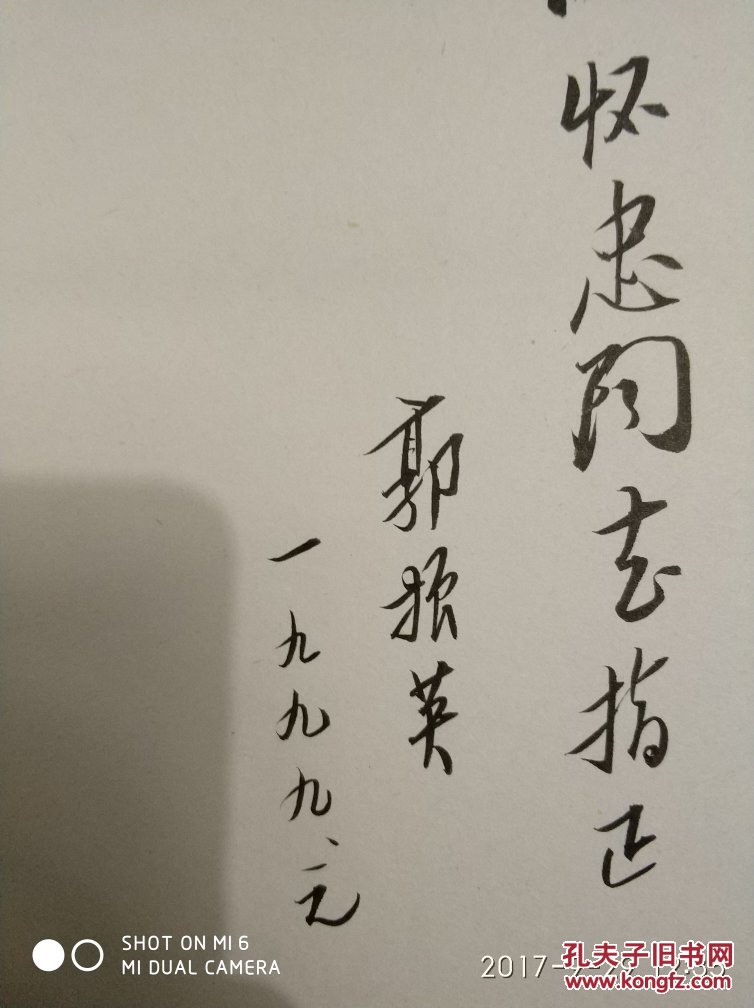 怀忠同志指正
郭振英
一九九九、元
SHOT ON MI 6
MI DUAL CAMERA
孔夫子旧书网
www.kongfz.com